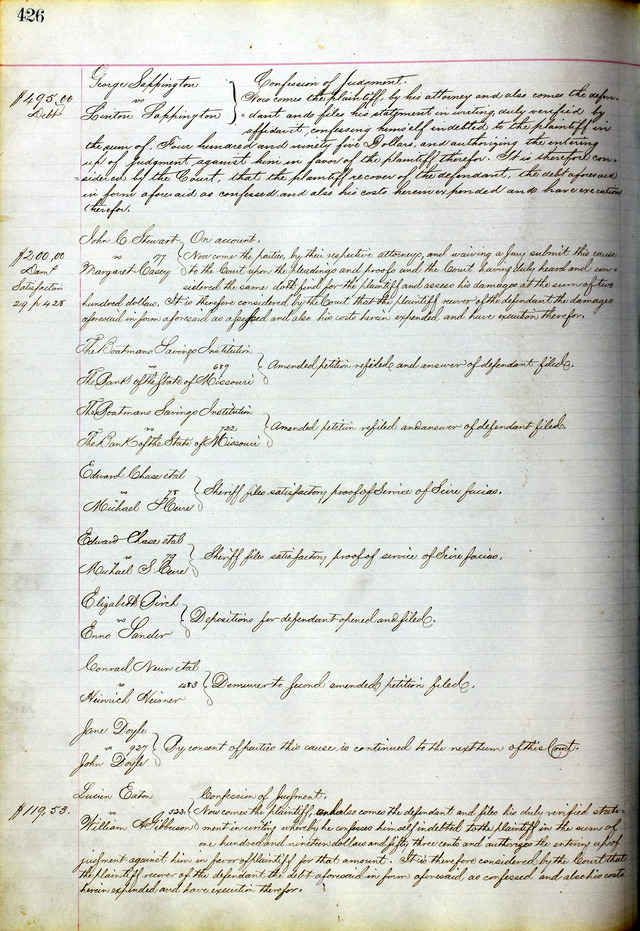 426
George Sappington
vs
Linton Sappington
$495,00
Debt
Confession of Judgment.
Now comes the plaintiff, by his attorney and also comes the defen-
dant and files his statement in writing, duly verified by
affidavit, confessing himself indebted to the plaintiff in
the sum of Four hundred and ninety five Dollars, and authorizing the entering
up of Judgment, against him in favor of the plaintiff therefor. It is therefore con-
sidered by the Court, that the plaintiff recover of the defendant, the debt aforesaid
in form aforesaid as confessed, and also his costs herein expended and have execution
therefor.
John C Stewart
vs 77
Margaret Casey
$200,00
Damˢ
Satisfaction
29 p 428
On account.
Now come the parties, by their respective attorneys, and waiving a jury submit this cause
to the Court upon the pleadings and proofs and the Court having duly heard and con-
sidered the same doth find for the plaintiff and assess his damages at the sum of two
hundred dollars. It is therefore considered by the Court that the plaintiff recover of the defendant the damages
aforesaid in form aforesaid as assessed and also his costs herein expended, and have execution therefor
The Boatmans Savings Institution
vs 689
The Bank of the State of Missouri
Amended petition refiled and answer of defendant filed.
The Boatmans Savings Institution
vs
The Bank of the State of Missouri
Amended petition refiled and answer of defendant filed
Edward Chase etal
vs 78
Michael S
Sheriff files satisfactory proof of Service of Scire facias.
Edward Chase etal
vs 79
Michael S
Sheriff files satisfactory proof of service of Scire facias.
Elizabeth Birch
vs
Enno Sander
Depositions for defendant opened and filed.
Conrad Neun etal
vs 1483
Heinrich Heisner
Demurrer to Second amended petition filed.
Jane Doyle
vs 927
John Doyle
By consent of parties this cause is continued to the next term of this Court.
Lucien Eaton
vs 523
William Gibbuson
$119,53.
Confession of Judgment.
Now comes the plaintiff, and also comes the defendant and files his duly verified state-
ment in writing whereby he confesses himself indebted to the plaintiff in the sum of
one hundred and nineteen dollars and fifty three cents and authorizes the entering up of
judgment against him in favor of plaintiff for that amount. It is therefore considered by the Court that
the plaintiff recover of the defendant the debt aforesaid in form aforesaid as confessed and also his costs
herein expended and have execution therefor.